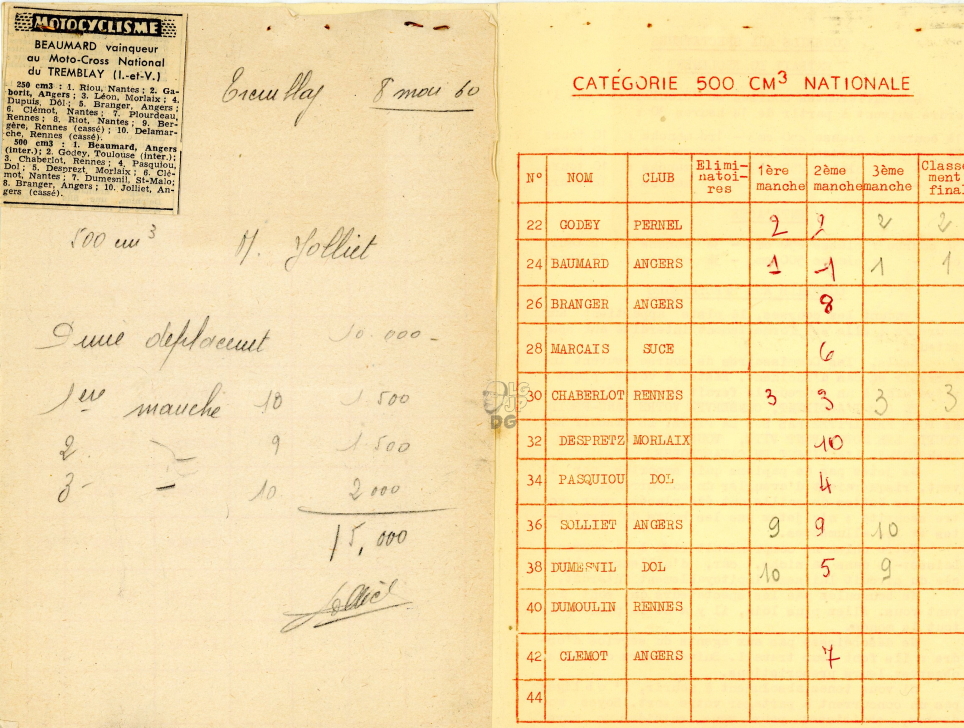 MOTOCYCLISME
BEAUMARD vainqueur
au Moto-Cross National
du TREMBLAY (I.-et-V.)
250 cm3 : 1. Riou, Nantes ; 2. Ga-
borit, Angers ; 3. Léon, Morlaix ; 4.
Dupuis, Dôl ; 5. Branger, Angers ;
6. Clémot, Nantes ; 7. Plourdeau,
Rennes ; 8. Riot, Nantes ; 9. Ber-
gère, Rennes (cassé) ; 10. Delamar-
che, Rennes (cassé).
500 cm3 : 1. Beaumard, Angers
(inter.) ; 2. Godey, Toulouse (inter.) ;
3. Chaberlot, Rennes ; 4. Pasquiou,
Dol ; 5. Desprezt, Morlaix ; 6. Clé-
mot, Nantes ; 7. Dumesnil, St-Malo ;
8. Branger, Angers ; 10. Jolliet, An-
gers (cassé).
Tremblay . 8 mai 60
500 cm3 M. Jolliet
Prime deplacement 10.000 -
1ere manche 10 1 500
2 - 9 1 500
3 - - 10 2 000
15,000
Jolliet
CATÉGORIE 500 CM3 NATIONALE
N° NOM CLUB Elimi-natoi-res 1ère manche 2ème manche 3ème manche Classe-ment final
22 GODEY PERNEL 2 2 2 2
24 BAUMARD ANGERS 1 1 1 1
26 BRANGER ANGERS 8
28 MARCAIS SUCE 6
30 CHABERLOT RENNES 3 3 3 3
32 DESPRETZ MORLAIX 10
34 PASQUIOU DOL 4
36 SOLLIET ANGERS 9 9 10
38 DUMESNIL DOL 10 5 9
40 DUMOULIN RENNES
42 CLEMOT ANGERS 7
44
DG